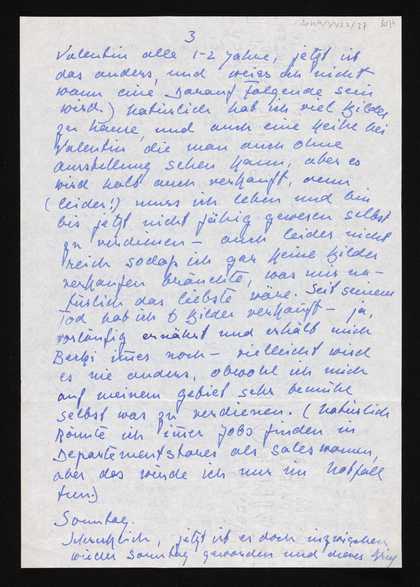 3
Valentin alle 1-2 Jahre, jetzt ist
das anders, und weiss ich nicht
wann eine Darauf folgende sein
wird.) Natürlich hab ich viel Bilder
zu Hause, und auch eine Reihe bei
Valentin die man auch ohne
Ausstellung sehen kann, aber es
wird halt auch verkauft, denn
(leider!) muss ich leben und bin
bis jetzt nicht fähig gewesen selbst
zu verdienen – auch leider nicht
reich sodass ich gar keine Bilder
verkaufen bräuchte, was mir na-
türlich das liebste wäre. Seit seinem
Tod hab ich 6 Bilder verkauft – ja,
vorläufig ernährt und erhält mich
immer noch – vielleicht wird
es nie anders, obwohl ich mich
auf meinem Gebiet sehr bemühe
selbst was zu verdienen. (Natürlich
könnte ich immer Jobs finden in
Departementstores als saleswoman,
aber das würde ich nur im Notfall
tun)
Sonntag.
Schrecklich, jetzt ist es doch inzwischen
wieder Sonntag geworden und dieser Brief